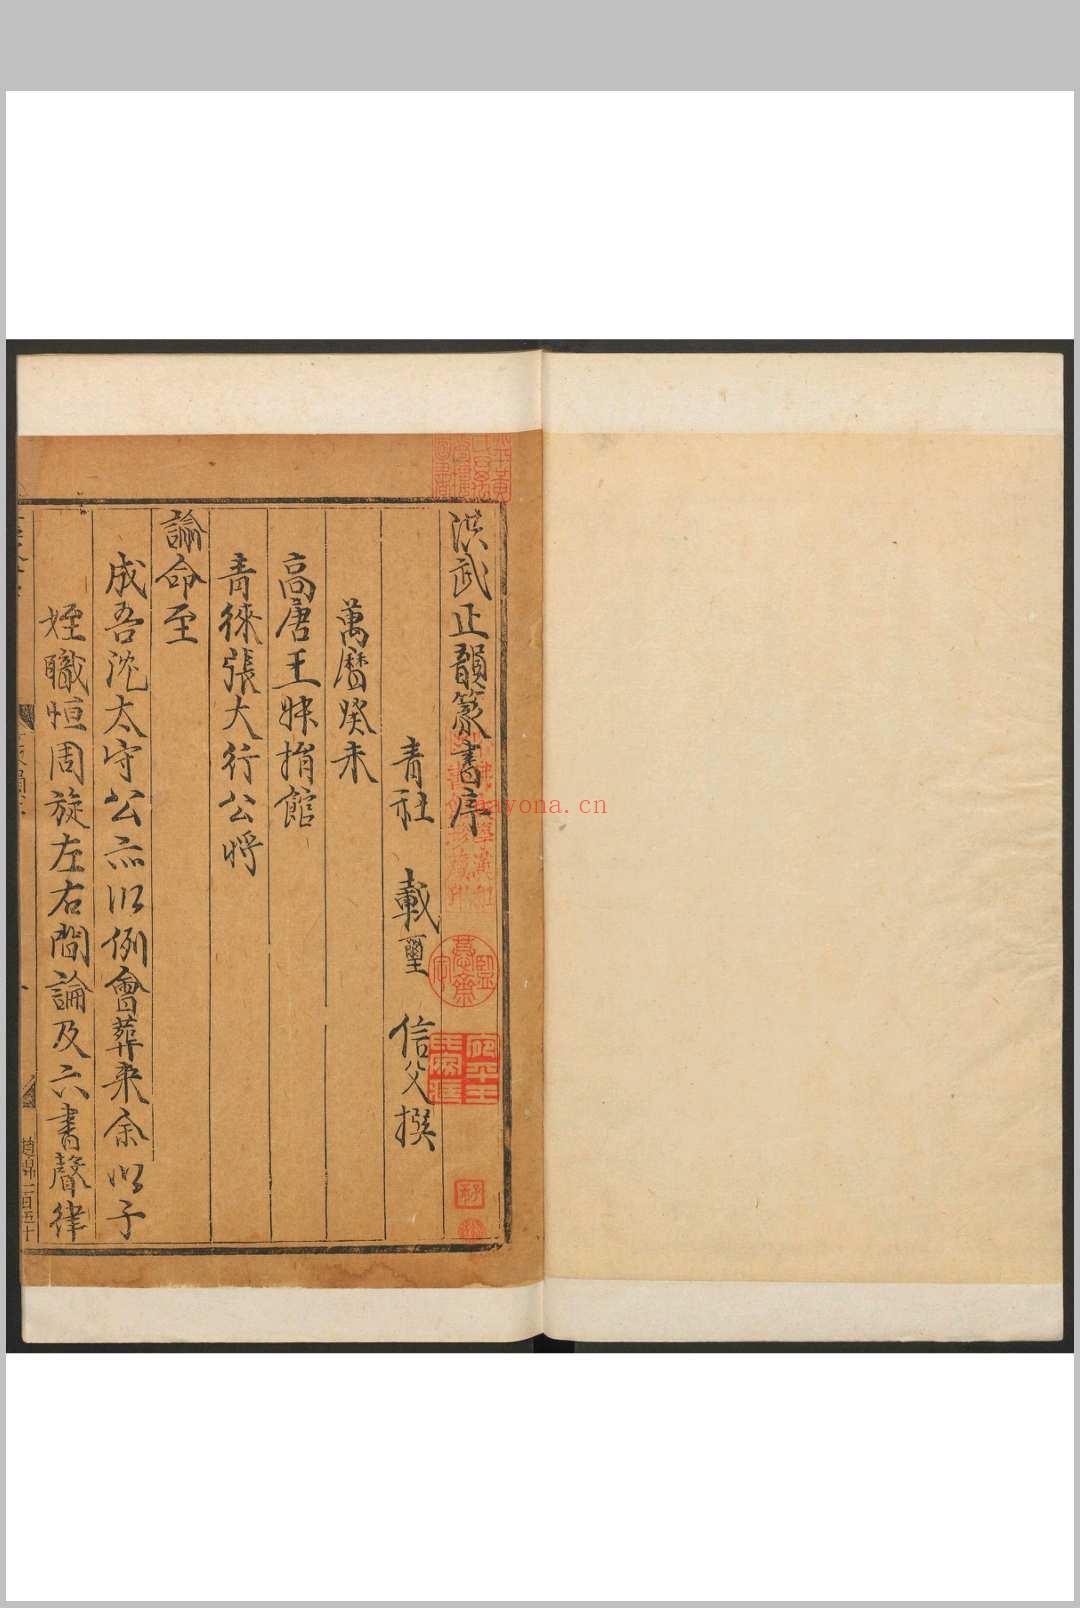 洪武正韻篆書序
青社　載璽　信父撰
萬曆癸未
高唐王妹捐館
青徠張大行公將
諭命至
成吾沈太守公亦以例會葬來余以子
姪職恒周旋左右間論及六書聲律
一百五十
ayona.cn